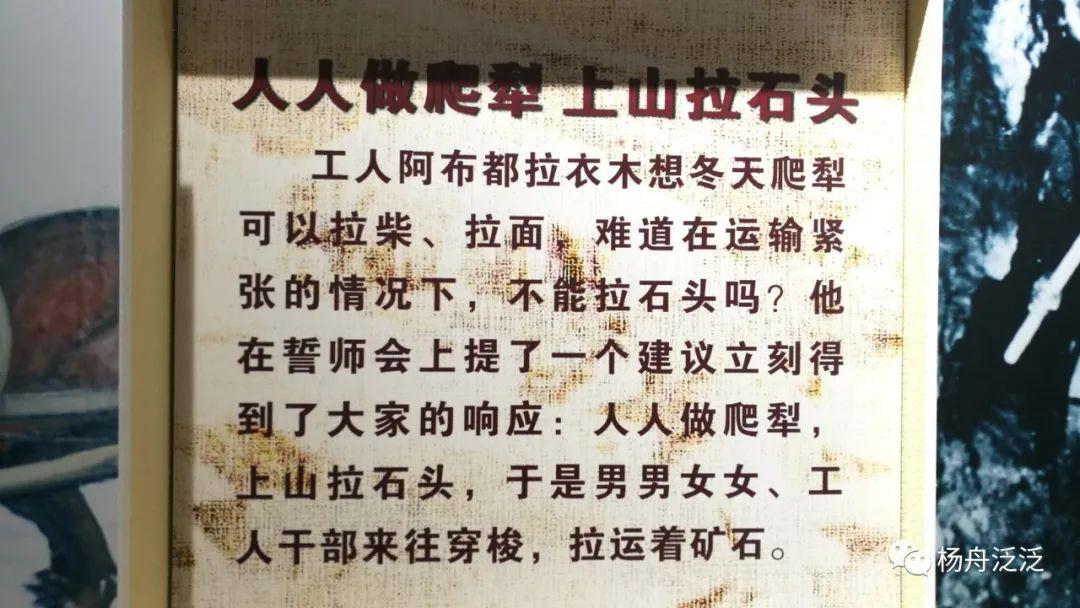 人人做爬犁 上山拉石头
工人阿布都拉衣木想冬天爬犁
可以拉柴、拉面，难道在运输紧
张的情况下，不能拉石头吗？他
在誓师会上提了一个建议立刻得
到了大家的响应：人人做爬犁，
上山拉石头，于是男男女女、工
人干部来往穿梭，拉运着矿石。
杨舟泛泛